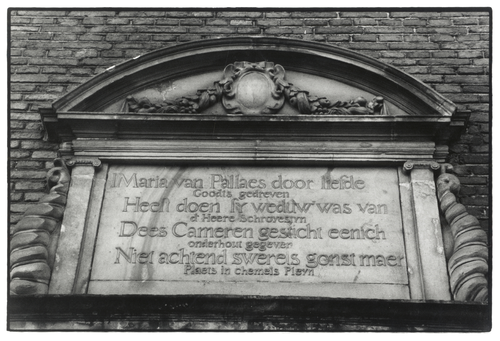 Maria van Pallaes door liefde
Goodts gedreven
Heeft doen sy weduw' was van
d' Heere Schroyesteyn
Dees Cameren gesticht eensch
onderhout gegeven
Niet achtend swerels gonst maer
Plaets in s'hemels Pleyn